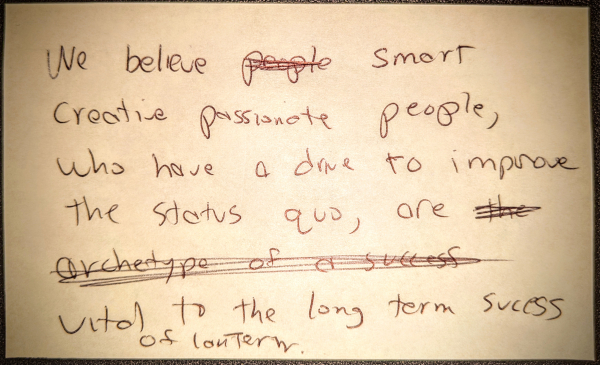 We believe people smart
creative passionate people,
who have a drive to improve
the status quo, are the
archetype of a success
vital to the long term sucess
of lantern.